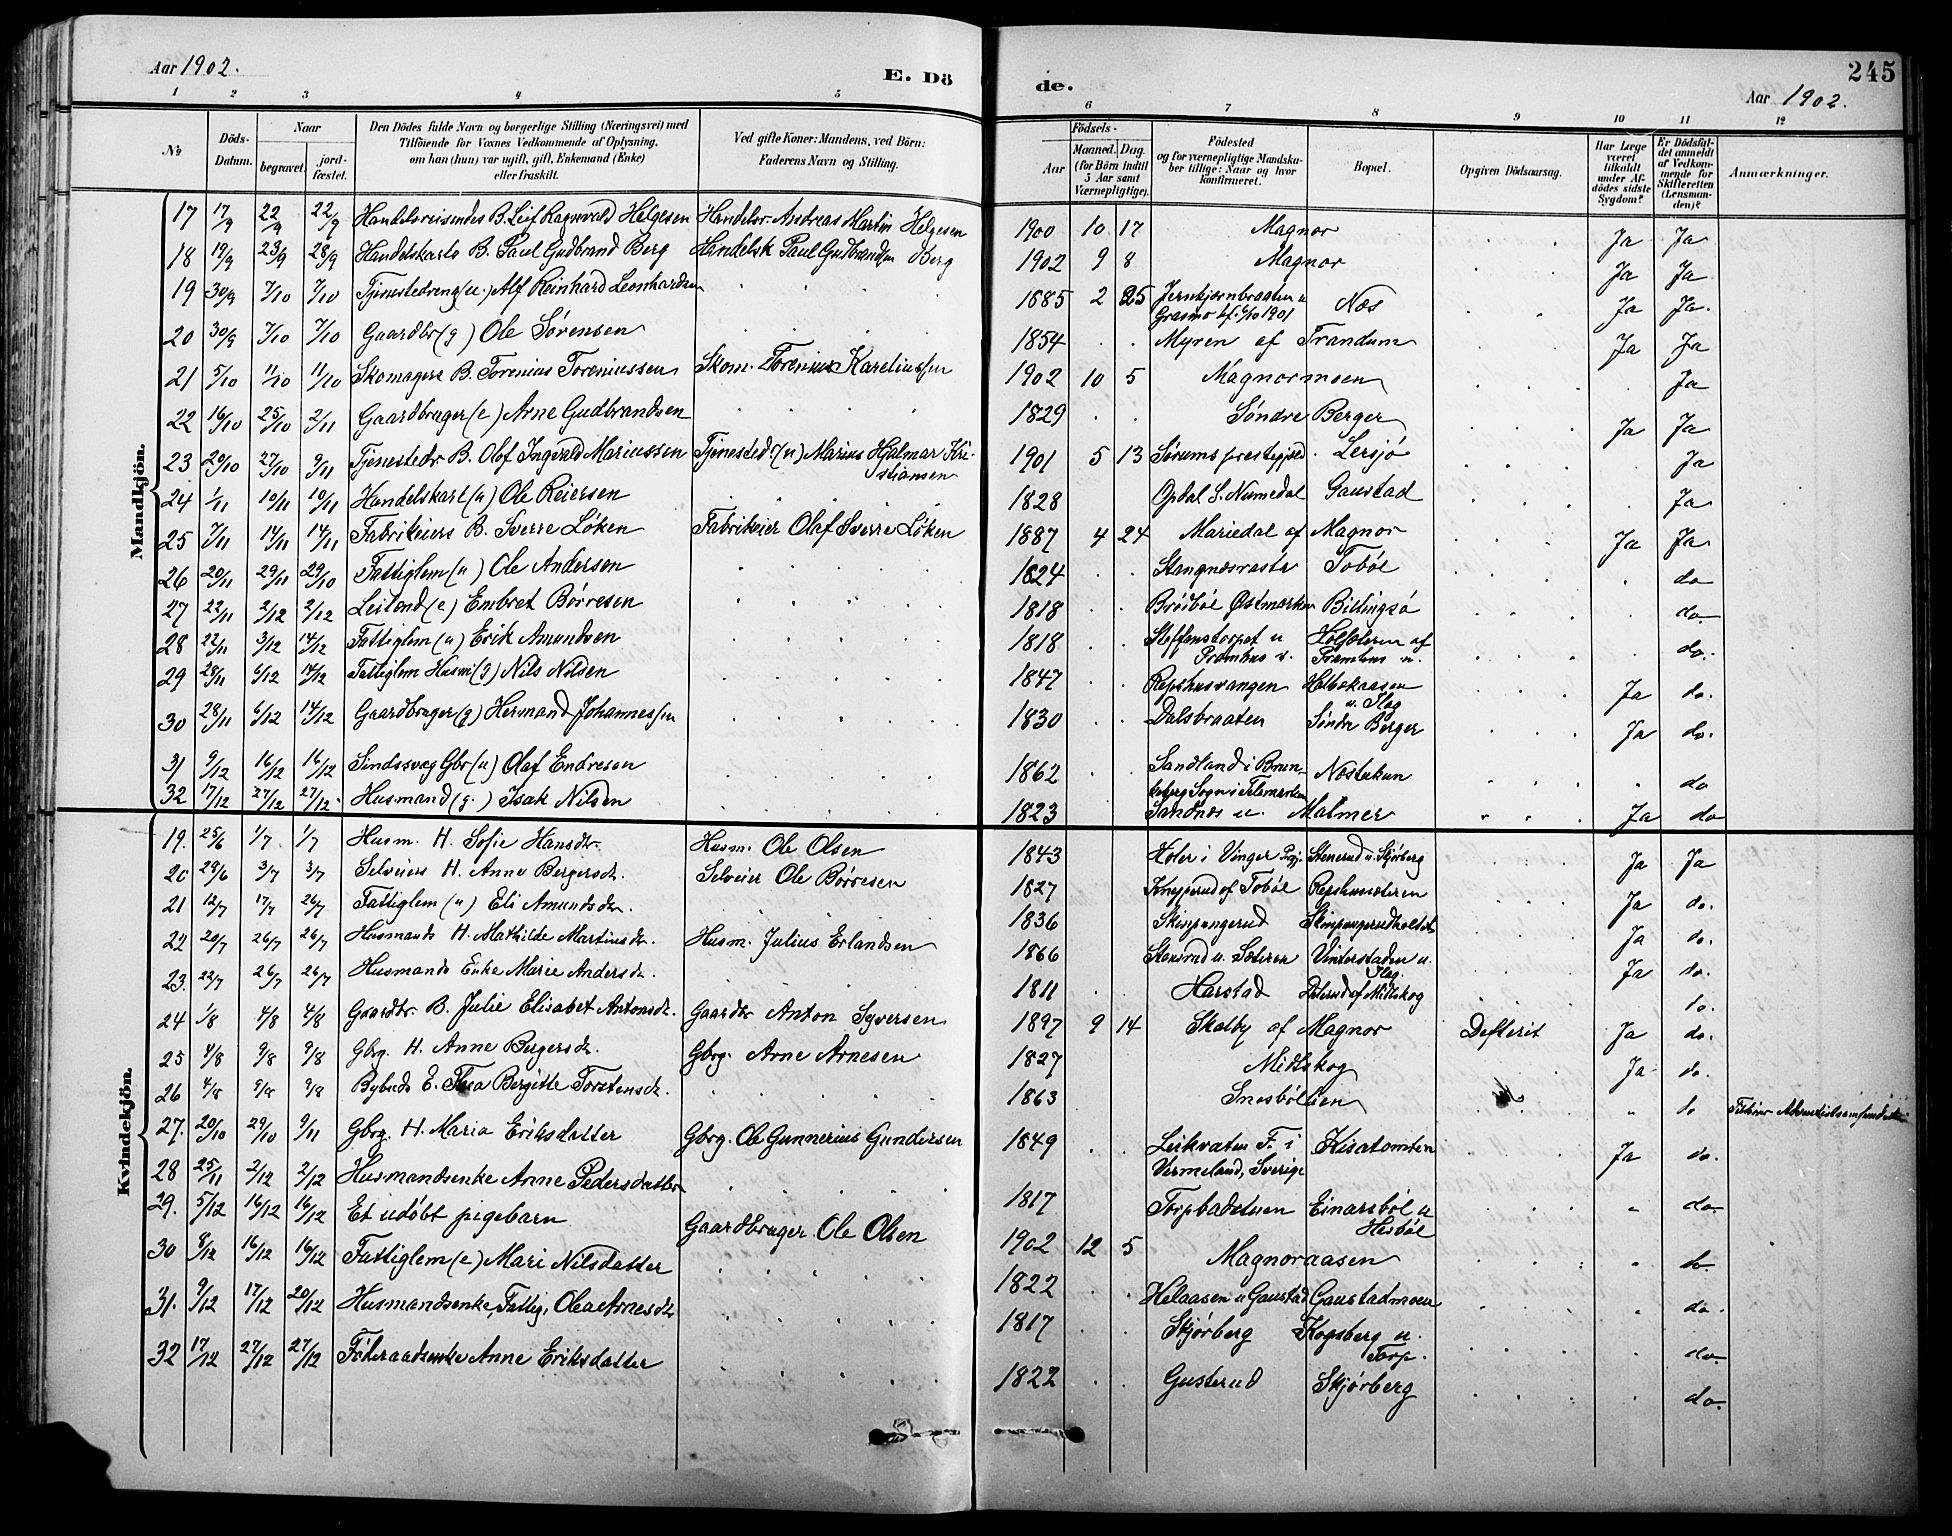 Aar 1902.
E. Dö
de.
245
Aar 1902.
1 2 3 4 5 6 7 8 9 10 11 12
No
Döds-Datum.
Naar
begravet.
jordfæstet.
Den Dödes fulde Navn og borgerlige Stilling (Næringsvei) med
Tilföiende for Voxnes Vedkommende af Oplysning,
om han (hun) var ugift, gift, Enkemand (Enke)
eller fraskilt.
Ved gifte Koner: Mandens, ved Börn:
Faderens Navn og Stilling.
Födsels-
Aar
Maaned. Dag.
(for Börn indtil
5 Aar samt
Værnepligtige).
Födested
og for værnepligtige Mandska-
ber tillige: Naar og hvor
konfirmeret.
Bopæl.
Opgiven Dödsaarsag.
Har Læge
været
tilkaldt
under Af-
dödes sidste
Sygdom?
Er Dödsfal-
det anmeldt
af Vedkom-
mende for
Skifteretten
(Lensman-
den)?
Anmærkninger.
Mandkjön.
17 17/9 22/9 22/9 Handelsreisendes B. Leif Ragnvald Helgesen Handelsr. Andreas Martin Helgesen 1900 10 17 Magnor Ja Ja
18 19/9 23/9 28/9 Handelskarls B. Paul Gudbrand Berg Handelsk Paul Gudbrandsen Berg 1902 9 8 Magnor Ja Ja
19 30/9 7/10 7/10 Tjenestedreng (u.) Alf Reinhard Leonhardsen 1885 2 25 Næs Ja Ja.
Grasmo 1901
20 30/9 7/10 7/10 Gaardbr (g) Ole Sørensen 1854 Myren af Trandum Ja Ja
21 5/10 11/10 11/10 Skomagers B. Torenius Toreniussen Skom. Torenius Kareliussen 1902 10 5 Magnormoen Ja
22 16/10 25/10 2/11 Gaardbruger (e) Arne Gudbrandsen 1829 Søndre Berger Ja Ja
23 20/10 27/10 9/11 Tjenestedr. B. Olof Ingvald Mariussen Tjenested. (u) Marius Hjalmar Kri-
stiansen 1901 5 13 Sørums prestegjeld. Lersjø Ja
24 1/11 10/11 10/11 Handelskarl (u) Ole Reiersen 1828 Opdal i Numedal Gaustad Ja
25 7/11 14/11 14/11 Fabrikeiers B. Sverre Løken Fabrikeier Olaf Sverre Løken 1887 4 24 Mariedal af Magnor Ja Ja
26 20/11 29/11 29/10 Fattiglem (u) Ole Andersen 1824 Stangnæsrasta Tobøl do
27 22/11 2/12 2/12 (e) Embret Børresen 1818 Brøibøl Østmarken Billingsø do.
28 22/11 3/12 14/12 Fattiglem (u) Erik Amundsen 1818 Steffenstorpet u do.
29 28/11 6/12 14/12 Fattiglem Husm (g) Nils Nilsen 1847 Repshusvangen Holbækaasen
u. Slag Ja do.
30 28/11 6/12 14/12 Gaardbruger (g) Hermand Johannessen 1830 Dalsbraaten Søndre Berger Ja do.
31 9/12 16/12 16/12 Sindssvag Gbr (u) Olaf Endresen 1862 Sandland i Brun-
keberg Sogn i Telemarken do
32 17/12 27/12 27/12. Husmand (g.) Isak Nilsen 1823 Sandnes u. Malmer Ja do
Kvindekjön.
19. 25/6 1/7 1/7 Husm. H. Sofie Hansdtr. Husm. Ole Olsen 1843 Holer i Vinger Prgj. Stenerud u. Skjørberg Ja Ja
20 29/6 3/7 3/7 Selveiers H. Anne Bergersdtr. Selveier Ole Børresen 1827 Knypperud af Tobøl Repshussæteren Ja do.
21 12/7 17/7 26/7 Fattiglem (u) Eli Amundsdtr. 1836 Skimpangerud Ja do.
22 20/7 26/7 26/7 Husmands H. Mathilde Martinsdtr. Husm. Julius Erlandsen 1866 Stensrud u. Sæteren Vinterstaden u.
Slag. Ja do.
23. 22/7 26/7 26/7 Husmands Enke Marie Andersdtr. 1811 Harstad af Midtskog do.
24 1/8 4/8 4/8 Gaardbr. B. Julie Elisabet Antonsdtr. Gaardbr Anton Syversen 1897 9 14 Skalby af Magnor Difterit Ja do.
25 4/8 9/8 9/8 Gbrg. H. Anne Bergersdtr. Gbrg. Arne Arnesen 1827 Midtskog Ja do.
26 4/8 9/8 9/8 E. Thea Bergitte Torstensdtr. 1863 Snesbølien do
27. 20/10 29/10 9/11 Gbrg. H. Maria Eriksdatter Gbrg. Ole Gunnerius Gundersen 1849 Leikvaten F. i
Vermeland, Sverige Kisatomten Ja do.
28 25/11 2/12 2/12 Husmandsenke Anne Pedersdatter 1817 Einarsbøl u
Hesbøl do.
29. 5/12 16/12 16/12 Et udøbt pigebarn Gaardbruger Ole Olsen 1902 12 5 Magnoraasen do.
30 8/12 16/12 16/12 Fattiglem (e) Mari Nilsdatter 1822 Helaasen u Gaustad Gaustadmoen do.
31. 9/12 17/12 20/12 Husmandsenke, Fattig, Olea Arnesdtr 1817 Skjørberg Kogsberg u.
Torp. do.
32 17/12 27/12 27/12 Føderaadsenke Anne Eriksdatter 1822 Gusterud Skjørberg do.